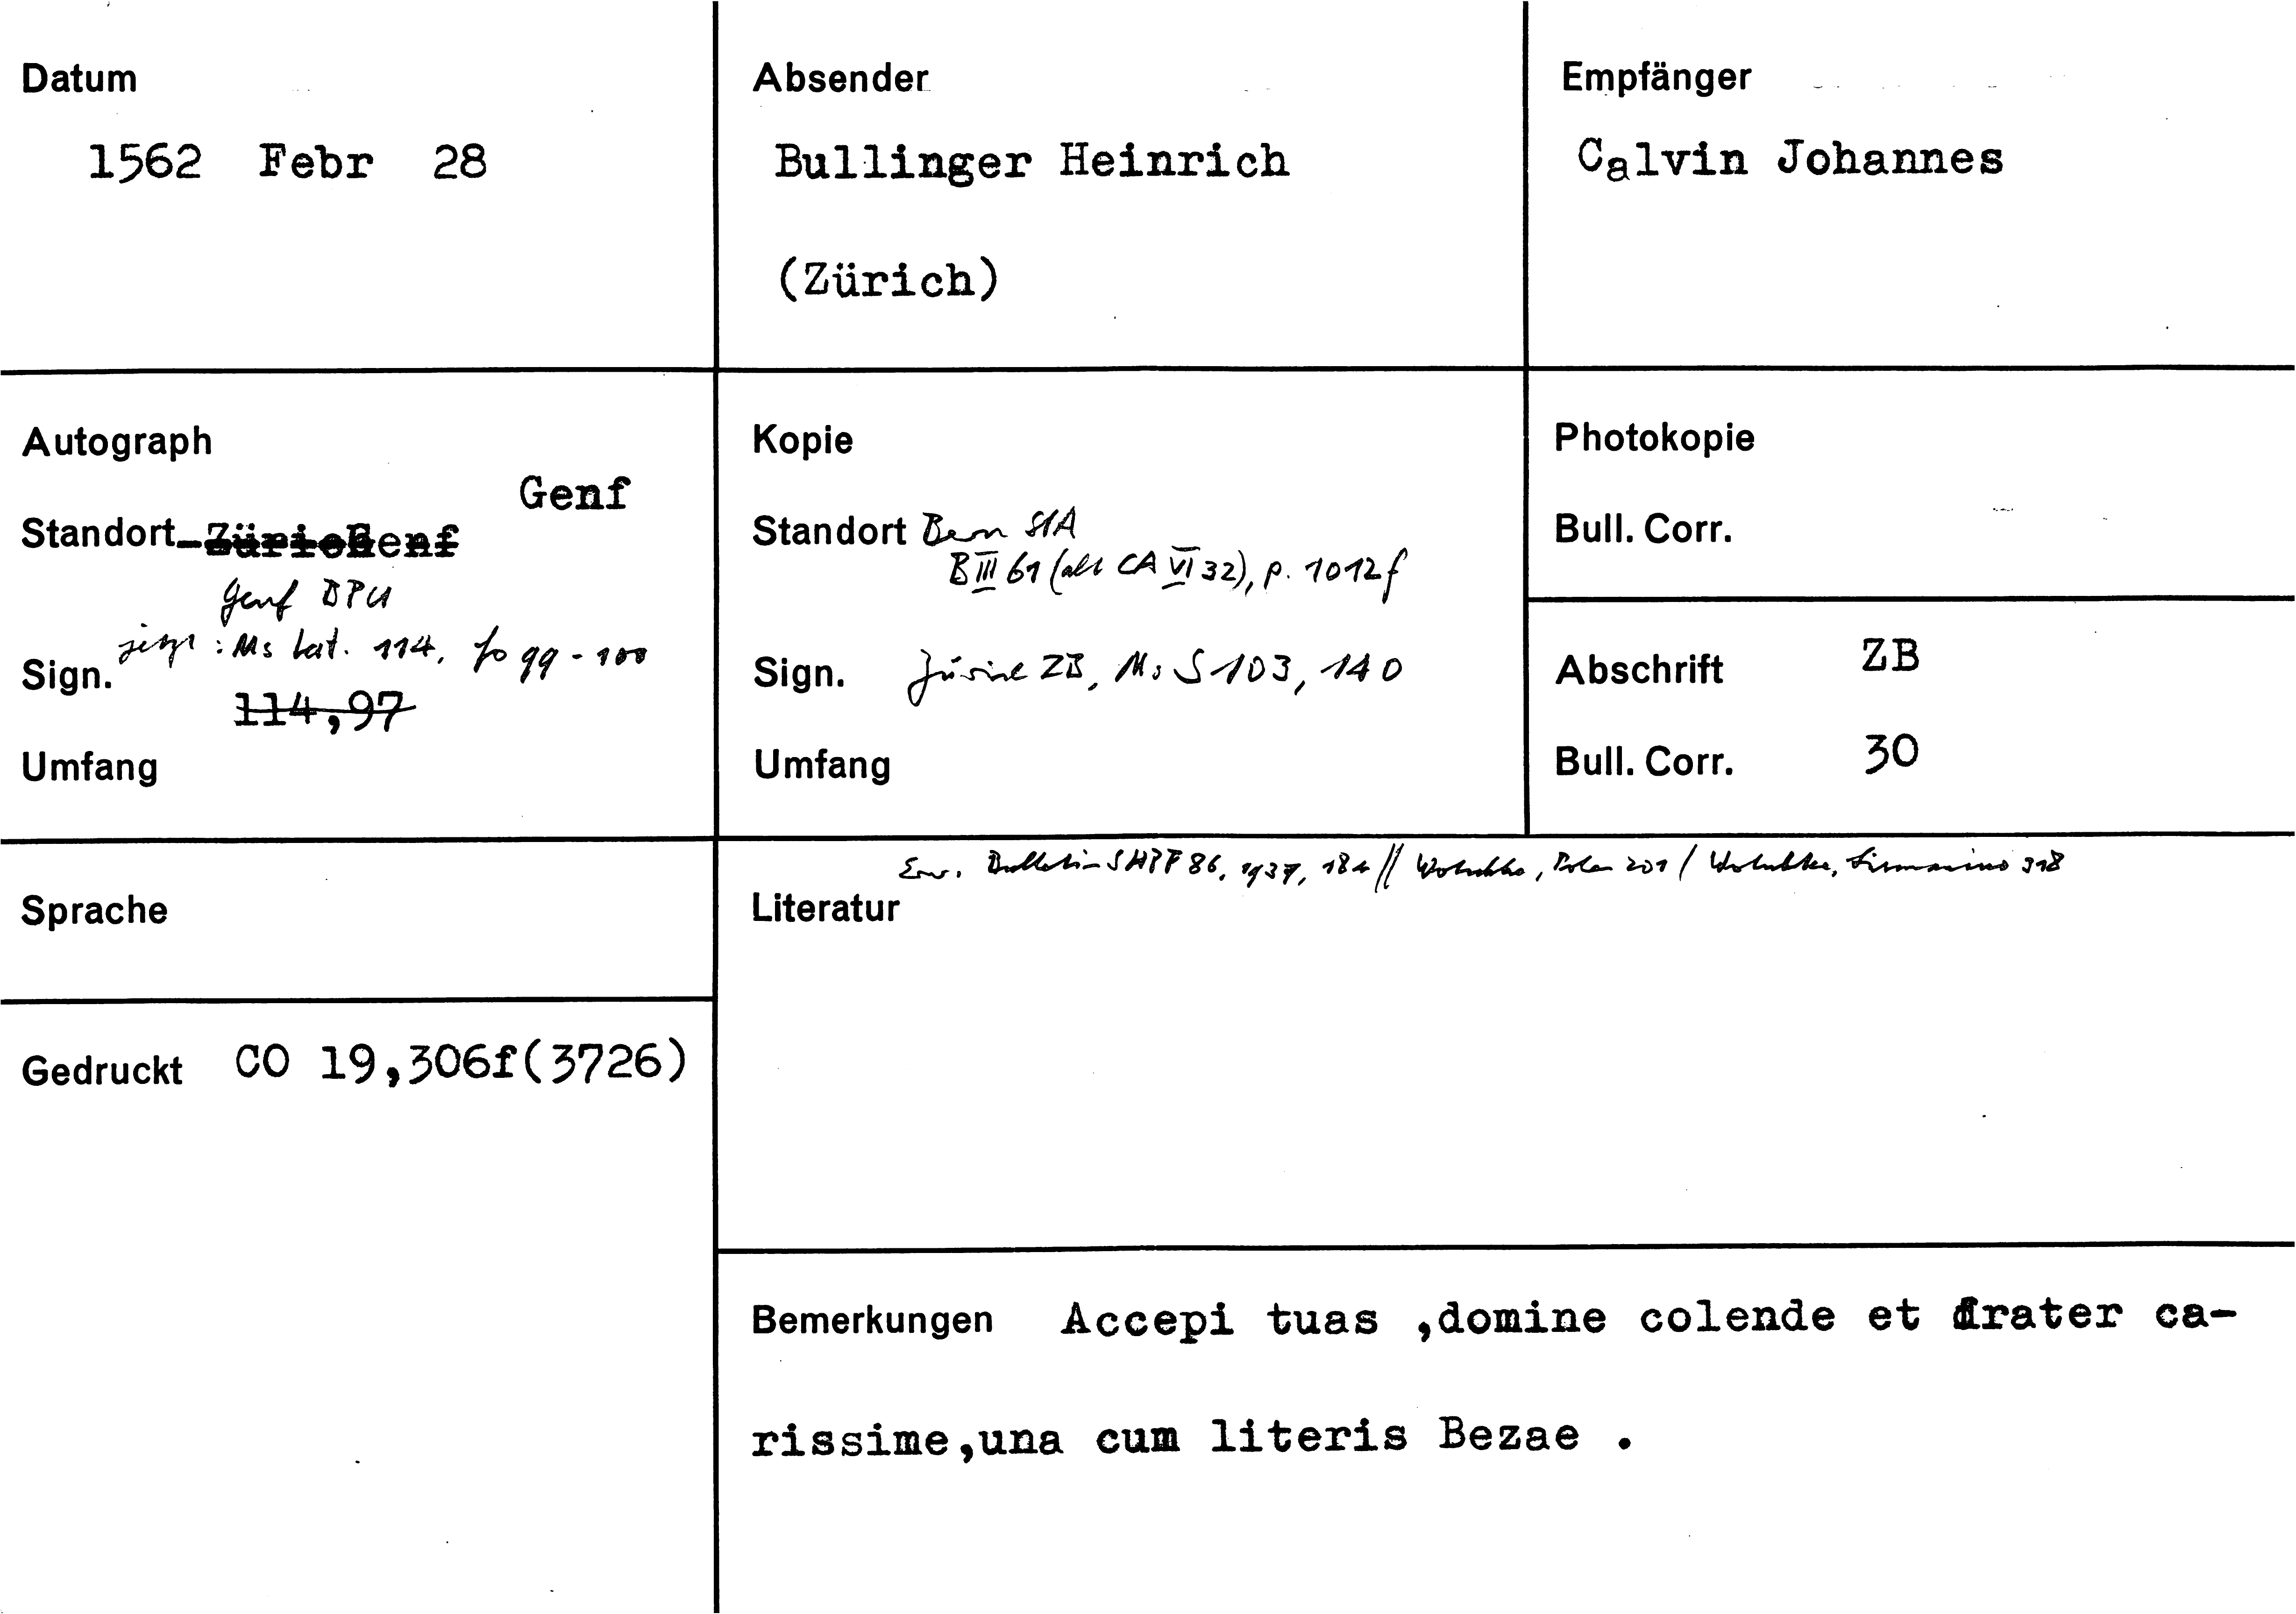 Datum
1562 Febr 28
Absender
Bullinger Heinrich
(Zürich)
Empfänger
Calvin Johannes
Autograph
Genf
Standort
Genf BPU
Sign. jetzt: Ms lat. 114, fo 99-100
114,97
Umfang
Kopie
Standort Bern StA
B III 61 (alt CA VI 32), p. 1012f
Sign. Zürich ZB, Ms S 103, 140
Umfang
Photokopie
Bull. Corr.
Abschrift ZB
Bull. Corr. 30
Sprache
Erw. Bulletin SHPF 86, 1937, 184 // Wotschke, Polen 201 / Wotschke, Lismanino 318
Literatur
Gedruckt CO 19,306f(3726)
Bemerkungen Accepi tuas ,domine colende et frater ca-
rissime,una cum literis Bezae .